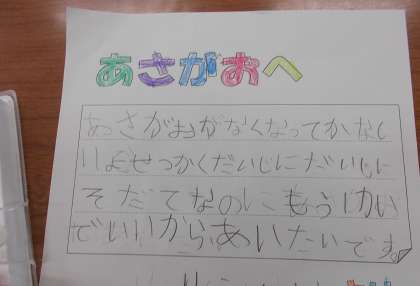 あさがおへ
あさがおがなくなってかなし
いよせっかくだいじにだいじに
そだてなのにもう1かい
でいいからあいたいです。